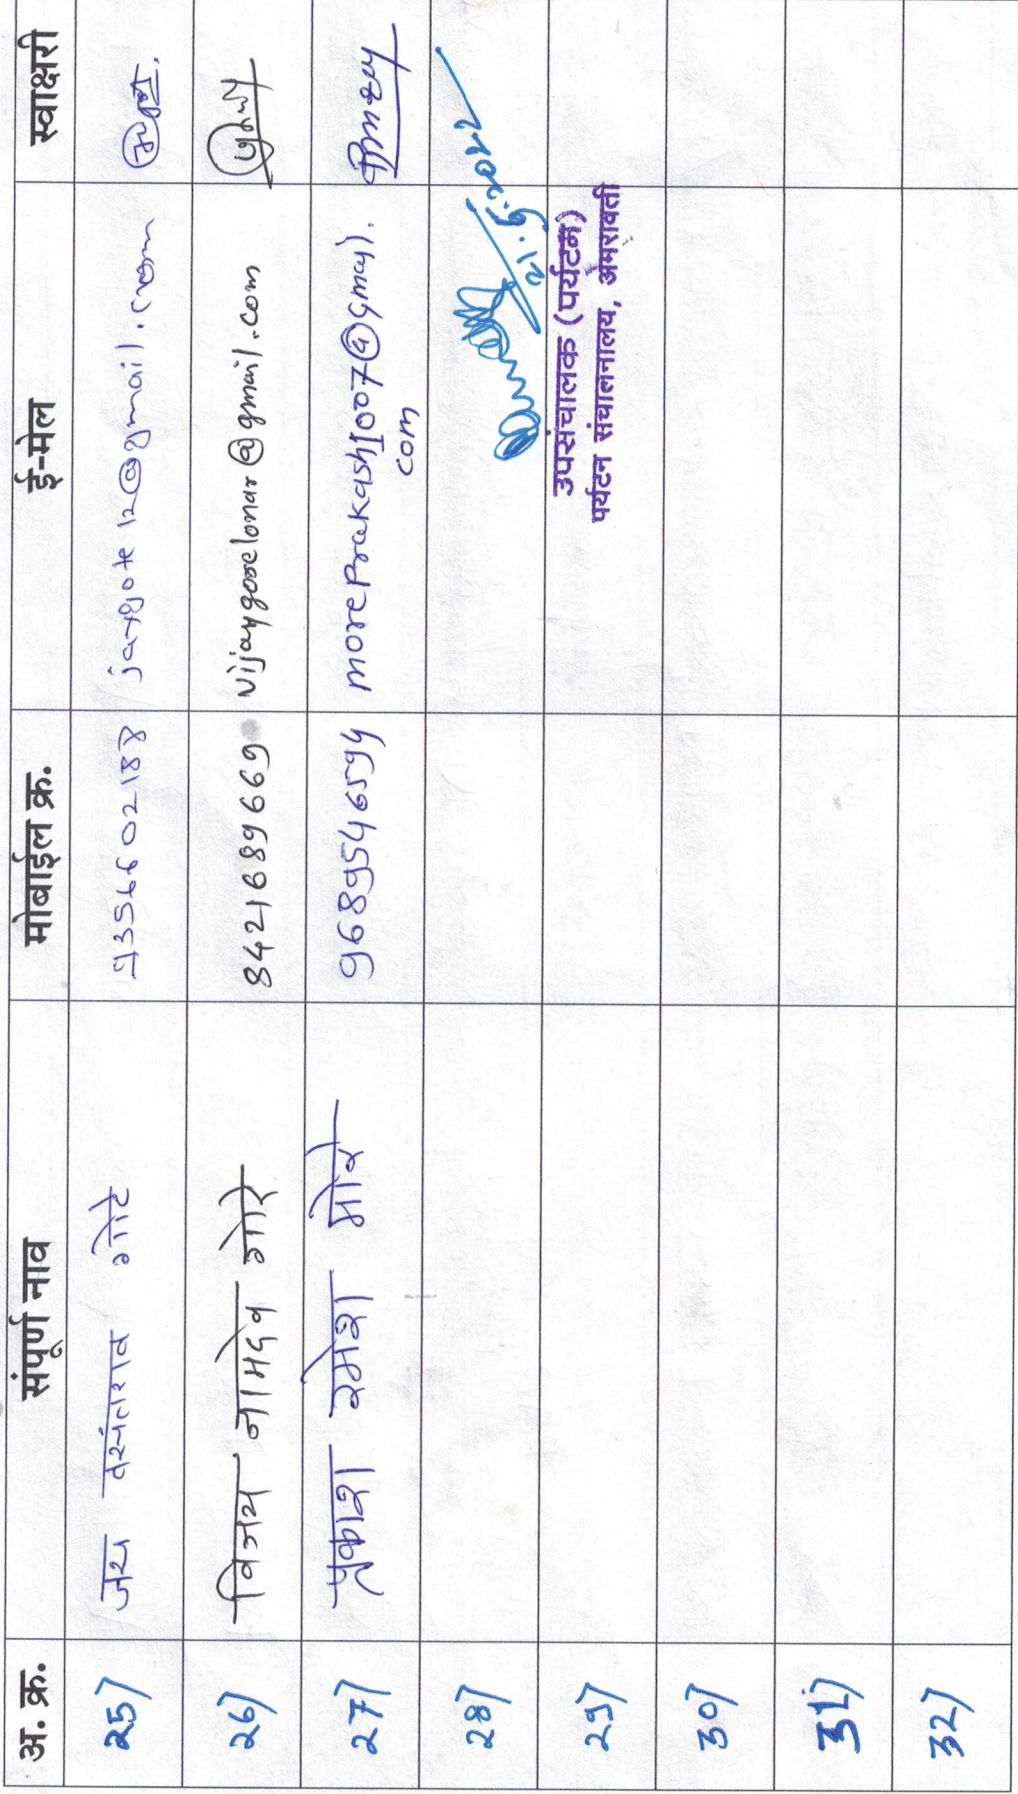 अ. क्र. संपूर्ण नाव मोबाईल क्र. ई-मेल स्वाक्षरी
25) जय वसंतराव गोटे 9356602188 jaygote12@gmail.com
26) विजय नामदेव गोरे 8421689669 vijaygorelonar@gmail.com
27) प्रकाश रमेश मोरे 9689546594 moreprakash1007@gmail.
com
28)
21.6.2022
29)
उपसंचालक (पर्यटन)
पर्यटन संचालनालय, अमरावती
30)
31)
32)